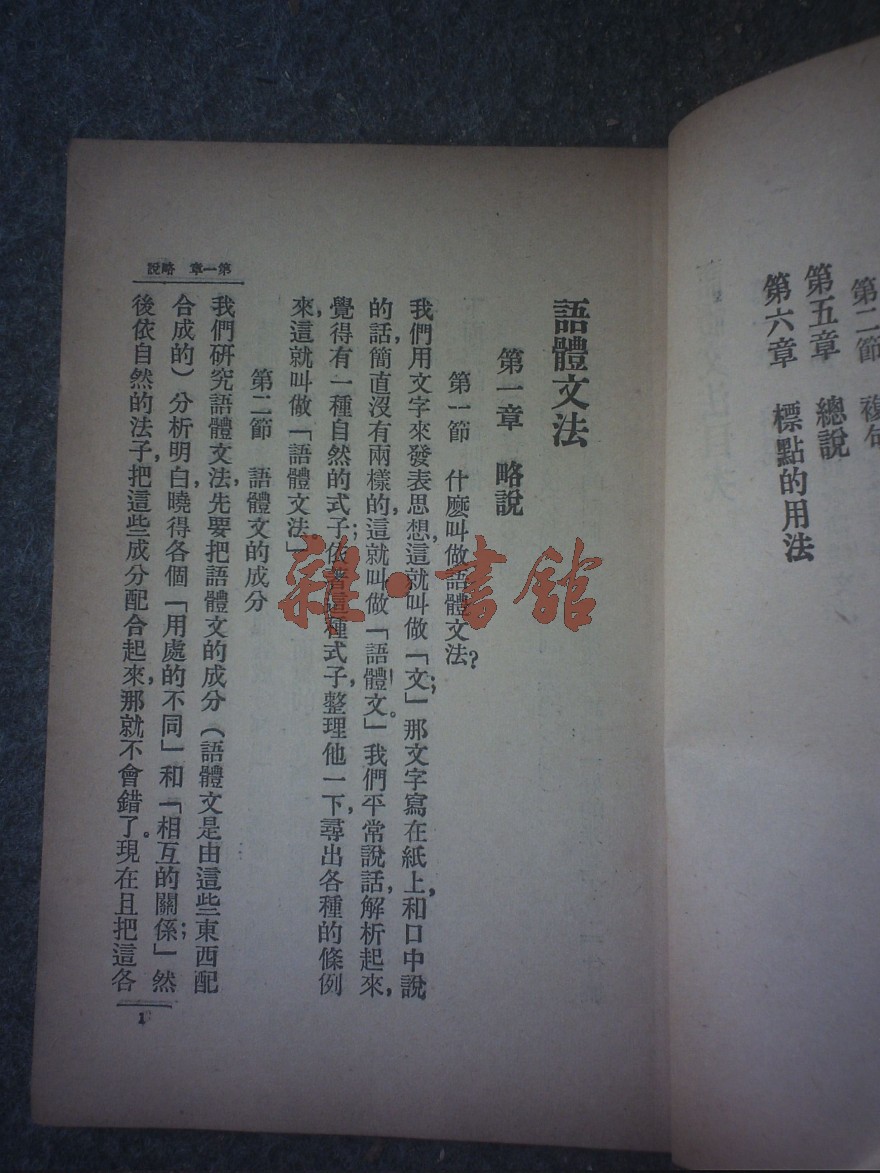 第二節 複句
第五章 總說
第六章 標點的用法
語體文法
第一章 略說
第一節 什麼叫做語體文法?
我們用文字來發表思想,這就叫做「文」;那文字寫在紙上,和口中說
的話,簡直沒有兩樣的,這就叫做「語體文」。我們平常說話,解析起來,
覺得有一種自然的式子;依著這種式子,整理他一下,尋出各種的條例
來,這就叫做「語體文法。」
第二節 語體文的成分
我們研究語體文法,先要把語體文的成分(語體文是由這些東西配
合成的)分析明白,曉得各個「用處的不同」和「相互的關係」;然
後依自然的法子,把這些成分配合起來,那就不會錯了。現在且把這各
第一章 略說
1
雜·書館